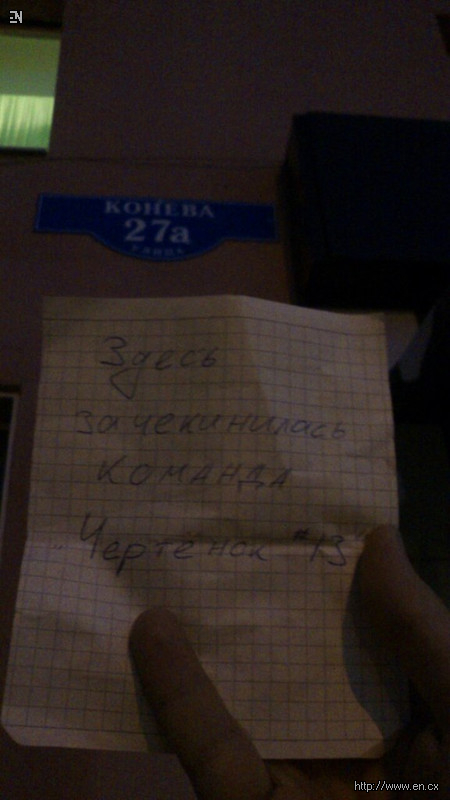 EN
КОНЕВА
27а
улица
Здесь
зачекинилась
КОМАНДА
"Чертёнок "13"
http://www.en.cx